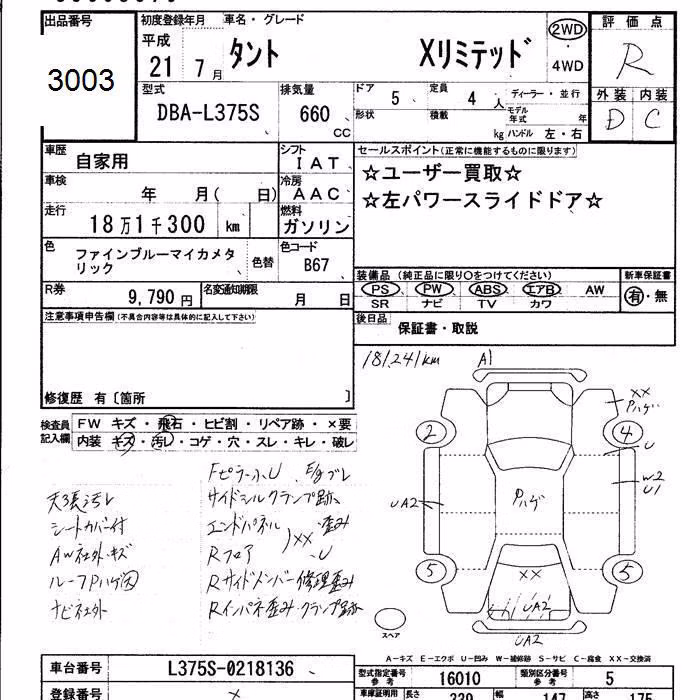 出品番号
3003
初度登録年月
平成
21 7月
車名・グレード
タント Xリミテッド
2WD
4WD
評価点
R
外装 内装
D C
型式
DBA-L375S
排気量
660
CC
ドア 5
定員 4 人
ディーラー・並行
形状
積載
kg
モデル年式
年
ハンドル 左・右
車歴
自家用
シフト
IAT
車検
年 月( 日)
冷房
AAC
走行
18万1千300 km
燃料
ガソリン
色
ファインブルーマイカメタリック
色替
色コード
B67
R券
9,790 円
名変通知期限
月 日
セールスポイント(正常に機能するものに限ります)
☆ユーザー買取☆
☆左パワースライドドア☆
装備品 (純正品に限り○をつけてください)
PS PW ABS エアB AW
SR ナビ TV カワ
新車保証書
有・無
後日品
保証書・取説
注意事項申告欄(不具合内容等は具体的に記入して下さい)
修復歴 有〔箇所 〕
検査員記入欄
FW キズ・飛石・ヒビ割・リペア跡・×要
内装 キズ・汚レ・コゲ・穴・スレ・キレ・破レ
天張汚レ
シートカバー付
AW社外・キズ
ルーフPハゲ凹
ナビ社外
Fピラー小U E/gブレ
サイドシルクランプ跡
エンドパネル XX 歪み
Rフロア U
Rサイドメンバー修理歪み
Rインパネ歪み・クランプ跡
181,241km
A1
XX
Pハゲ
2
4
U
W2
U1
UA2
Pハゲ
5
5
XX
UA2
UA2
スペア
A-キズ E-エクボ U-凹み W-補修跡 S-サビ C-腐食 XX-交換済
車台番号
L375S-0218136
登録番号
型式指定番号
参考
16010
類別区分番号
参考
5
車庫証明用
長さ
339
幅
147
高さ
175